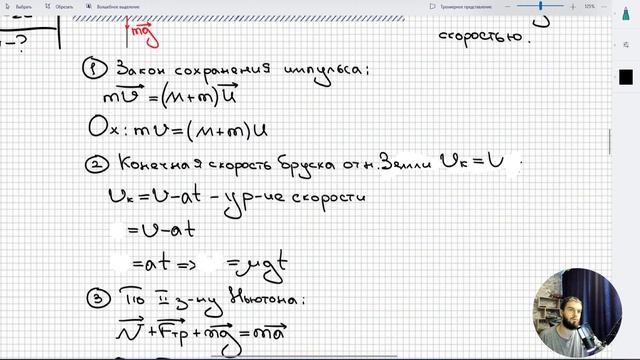 Рисовать
Стереть
Волшебное выделение
Трехмерное представление
125%
m g
скоростью.
1 Закон сохранения импульса:
mv = (M+m)u
Ox: mv = (M+m)u
2 Конечная скорость бруска отн. Земли vк = v
vк = v-at - ур-ие скорости
= v-at
= at => = μgt
3 По II з-ну Ньютона:
N + Fтр + mg = ma